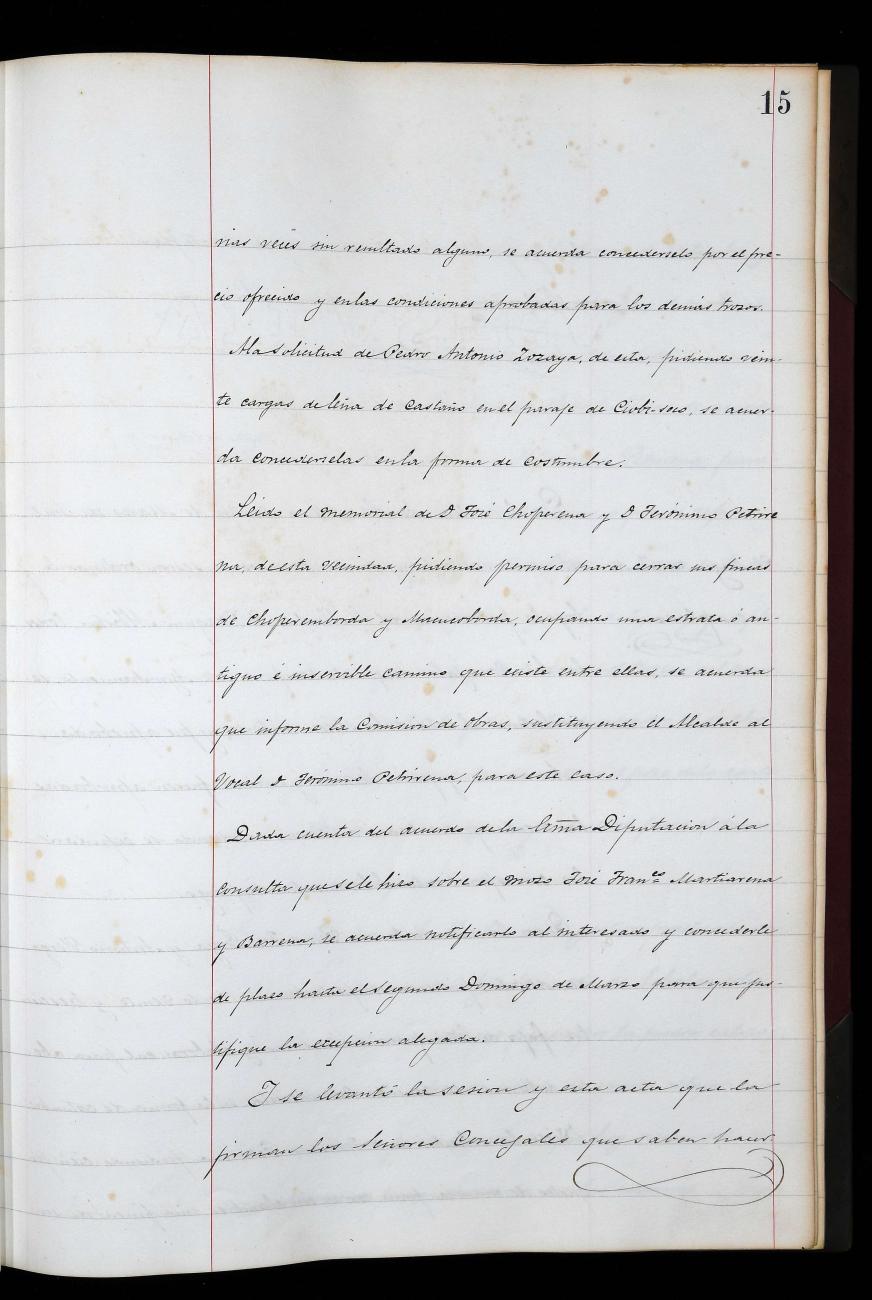 15
rias veces sin resultado alguno, se acuerda concederselo por el pre-
cio ofrecido y en las condiciones aprobadas para los demás trozos.
A la solicitud de Pedro Antonio Zozaya, de esta, pidiendo vein-
te cargas de leña de Castaño en el paraje de Ciobi-seco, se acuer-
da concederselas en la forma de costumbre.
Leido el memorial de D José Choperena y D Jerónimo Petrire
na, de esta vecindad, pidiendo permiso para cerrar sus fincas
de Choperemborda y Mucucoborda, ocupando una estrata ó an-
tiguo é inservible camino que existe entre ellas, se acuerda
que informe la Comision de Obras, sustituyendo el Alcalde al
Vocal D Jerónimo Petrirena, para este caso.
Dada cuenta del acuerdo de la Excma Diputacion á la
consulta que se le hizo sobre el mozo José Franco Martiarena
y Barrena, se acuerda notificarlo al interesado y concederle
de plazo hasta el segundo Domingo de Marzo para que jus-
tifique la excepcion alegada.
Y se levantó la sesion y esta acta que la
firman los Señores Concejales que saben hacer